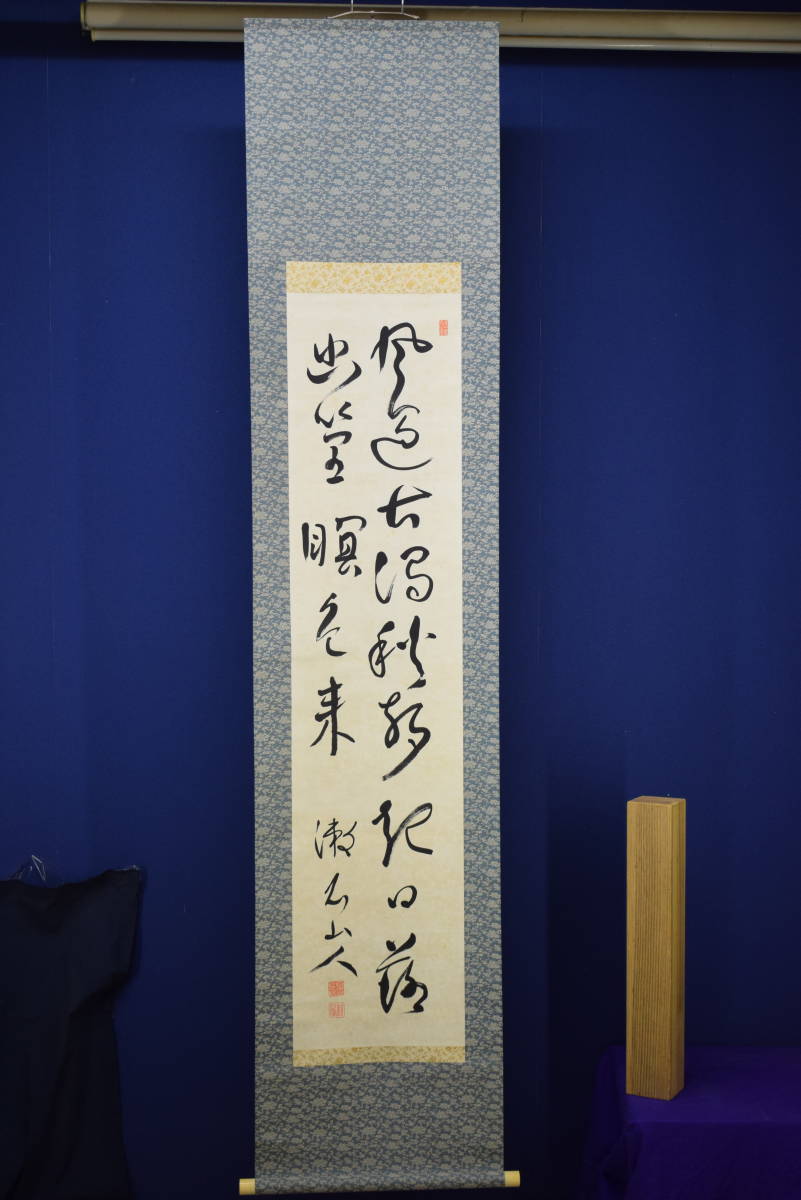 風過古澗秋聲起日落
幽篁暝色来
漱石山人